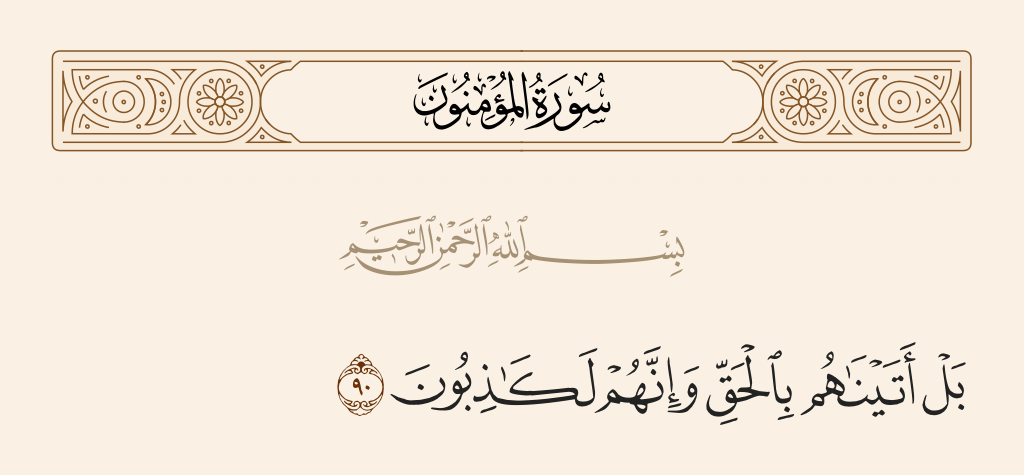 سُورَةُ المُؤْمِنُونَ
بِسْمِ ٱللَّهِ ٱلرَّحْمَٰنِ ٱلرَّحِيمِ
بَلْ أَتَيْنَٰهُم بِٱلْحَقِّ وَإِنَّهُمْ لَكَٰذِبُونَ ٩٠